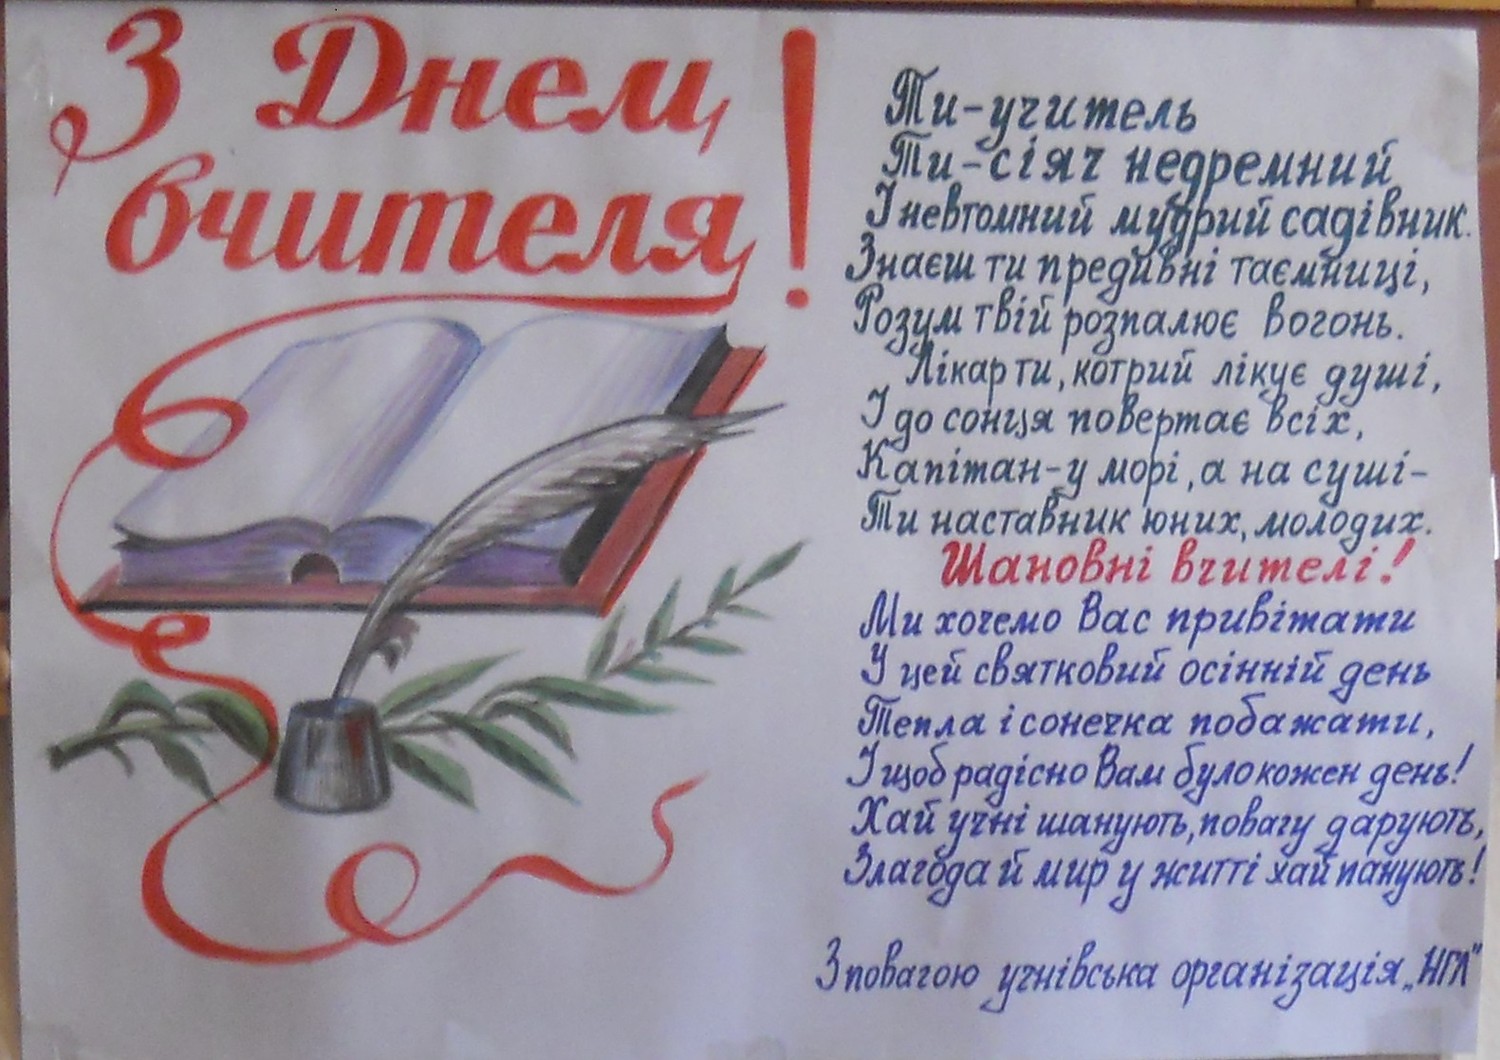 З Днем
вчителя!
Ти-учитель
Ти-сіяч недремний
І невтомний мудрий садівник.
Знаєш ти предивні таємниці,
Розум твій розпалює вогонь.
Лікар ти, котрий лікує душі,
І до сонця повертає всіх,
Капітан-у морі, а на суші-
Ти наставник юних, молодих.
Шановні вчителі!
Ми хочемо Вас привітати
У цей святковий осінній день
Тепла і сонечка побажати,
І щоб радісно Вам було кожен день!
Хай учні шанують, повагу дарують,
Злагода й мир у житті хай панують!
З повагою учнівська організація „НГЛ"